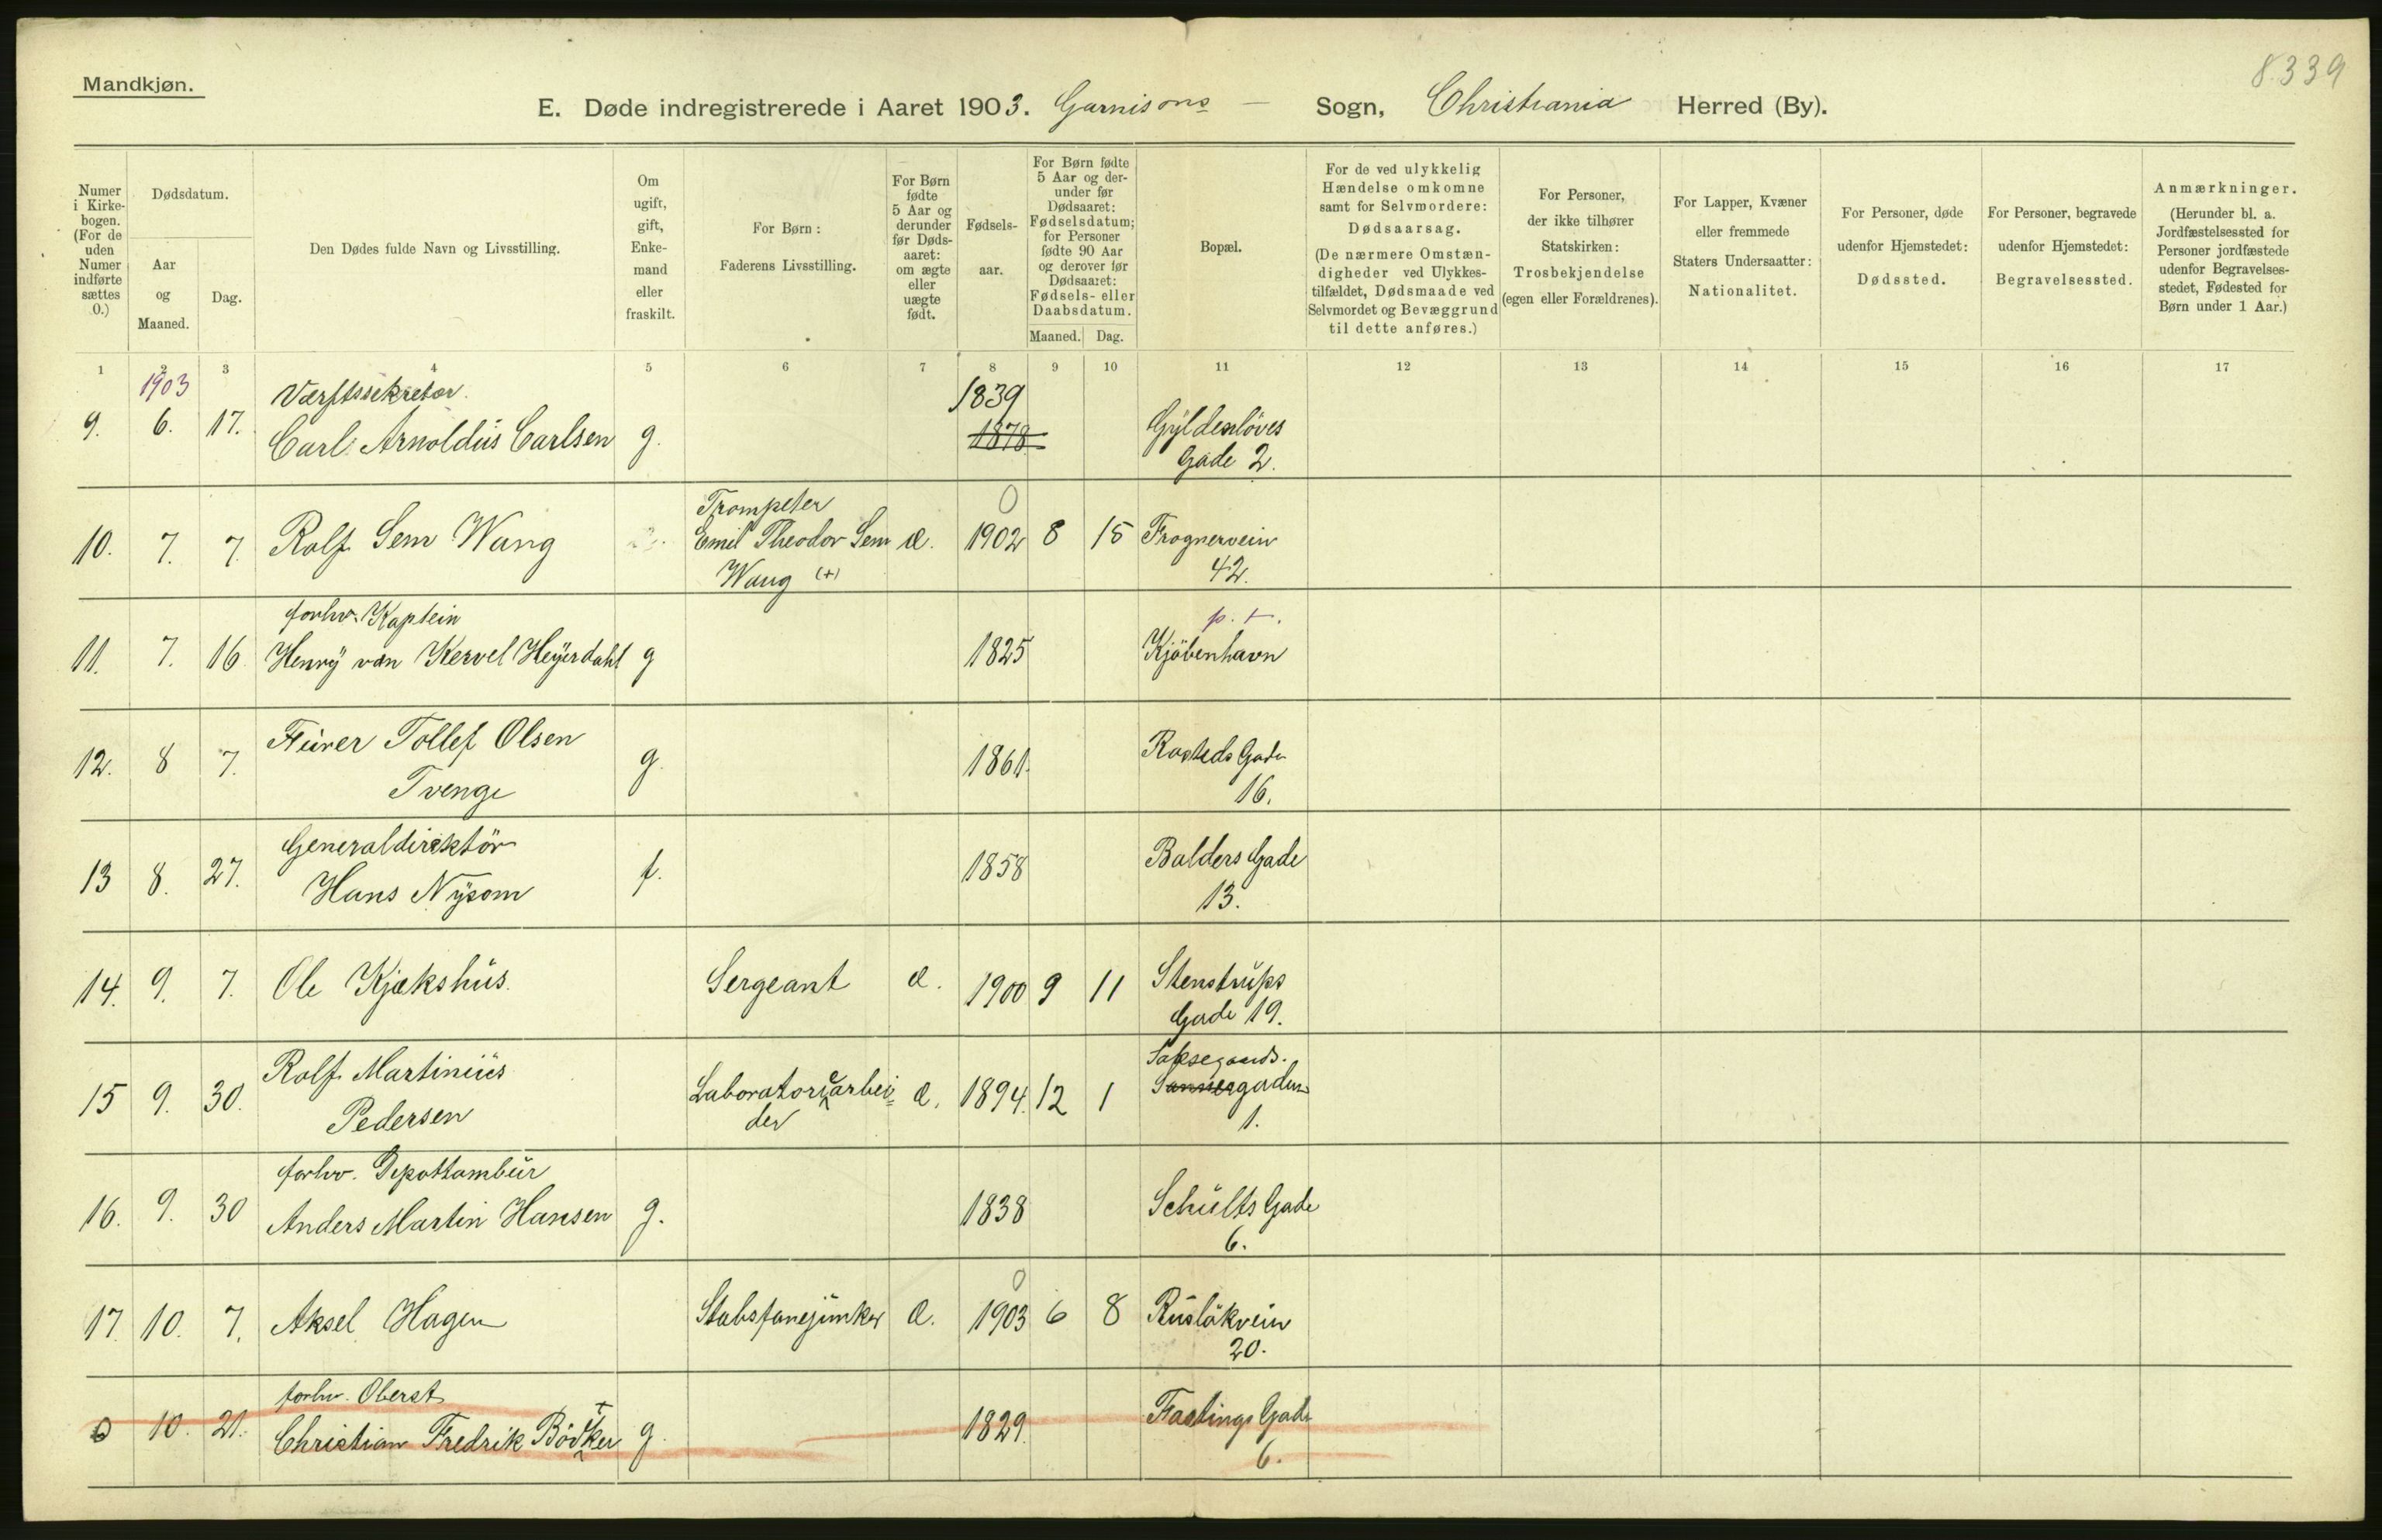 8.339
Mandkjøn.
E. Døde indregistrerede i Aaret 1903. Garnisons — Sogn, Christiania Herred (By).
Numer i Kirkebogen. (For de uden Numer indførte sættes 0.)
Dødsdatum.
Aar og Maaned.
Dag.
Den Dødes fulde Navn og Livsstilling.
Om ugift, gift, Enkemand eller fraskilt.
For Børn: Faderens Livsstilling.
For Børn fødte 5 Aar og derunder før Dødsaaret: om ægte eller uægte født.
Fødselsaar.
For Børn fødte 5 Aar og derunder før Dødsaaret: Fødselsdatum; for Personer fødte 90 Aar og derover før Dødsaaret: Fødsels- eller Daabsdatum.
Maaned. Dag.
Bopæl.
For de ved ulykkelig Hændelse omkomne samt for Selvmordere: Dødsaarsag. (De nærmere Omstændigheder ved Ulykkestilfældet, Dødsmaade ved Selvmordet og Bevæggrund til dette anføres.)
For Personer, der ikke tilhører Statskirken: Trosbekjendelse (egen eller Forældrenes).
For Lapper, Kvæner eller fremmede Staters Undersaatter: Nationalitet.
For Personer, døde udenfor Hjemstedet: Dødssted.
For Personer, begravede udenfor Hjemstedet: Begravelsessted.
Anmærkninger. (Herunder bl. a. Jordfæstelsessted for Personer jordfæstede udenfor Begravelsesstedet, Fødested for Børn under 1 Aar.)
1 2 3 4 5 6 7 8 9 10 11 12 13 14 15 16 17
1903 Værftssekretær. 1839
9. 6. 17. Carl Arnoldus Carlsen g. 1878 Gyldenløves
Gade 2.
Trompeter 0
10. 7. 7. Rolf Sem Wang Emil Theodor Sem æ. 1902 8 15 Frognervein
Wang (+) 42.
forhv. Kaptein p. t.
11. 7. 16 Henrÿ van Kervel Heÿerdahl g 1825 Kjöbenhavn
12. 8 7. Fürer Tollef Olsen g. 1861. Rosteds Gade
Tvenge 16.
Generaldirektör
13 8. 27. Hans Nÿsom f. 1858 Balders Gade
13.
14. 9. 7. Ole Kjækshus. Sergeant æ. 1900 9 11 Stenstrups
Gade 19.
Rolf Martinius
15 9. 30. Pedersen Laboratoriearbei= æ. 1894. 12 1 Sannergaden
der 1.
forhv. Depottambur
16. 9. 30 Anders Martin Hansen g. 1838 Schults Gade
6.
0
17. 10. 7. Aksel Hagen Stabsfanejunker æ. 1903 6 8 Rusløkvein
20.
forhv. Oberst
0 10. 21. Christian Fredrik Bödtker g. 1829. Fastings Gade
6.